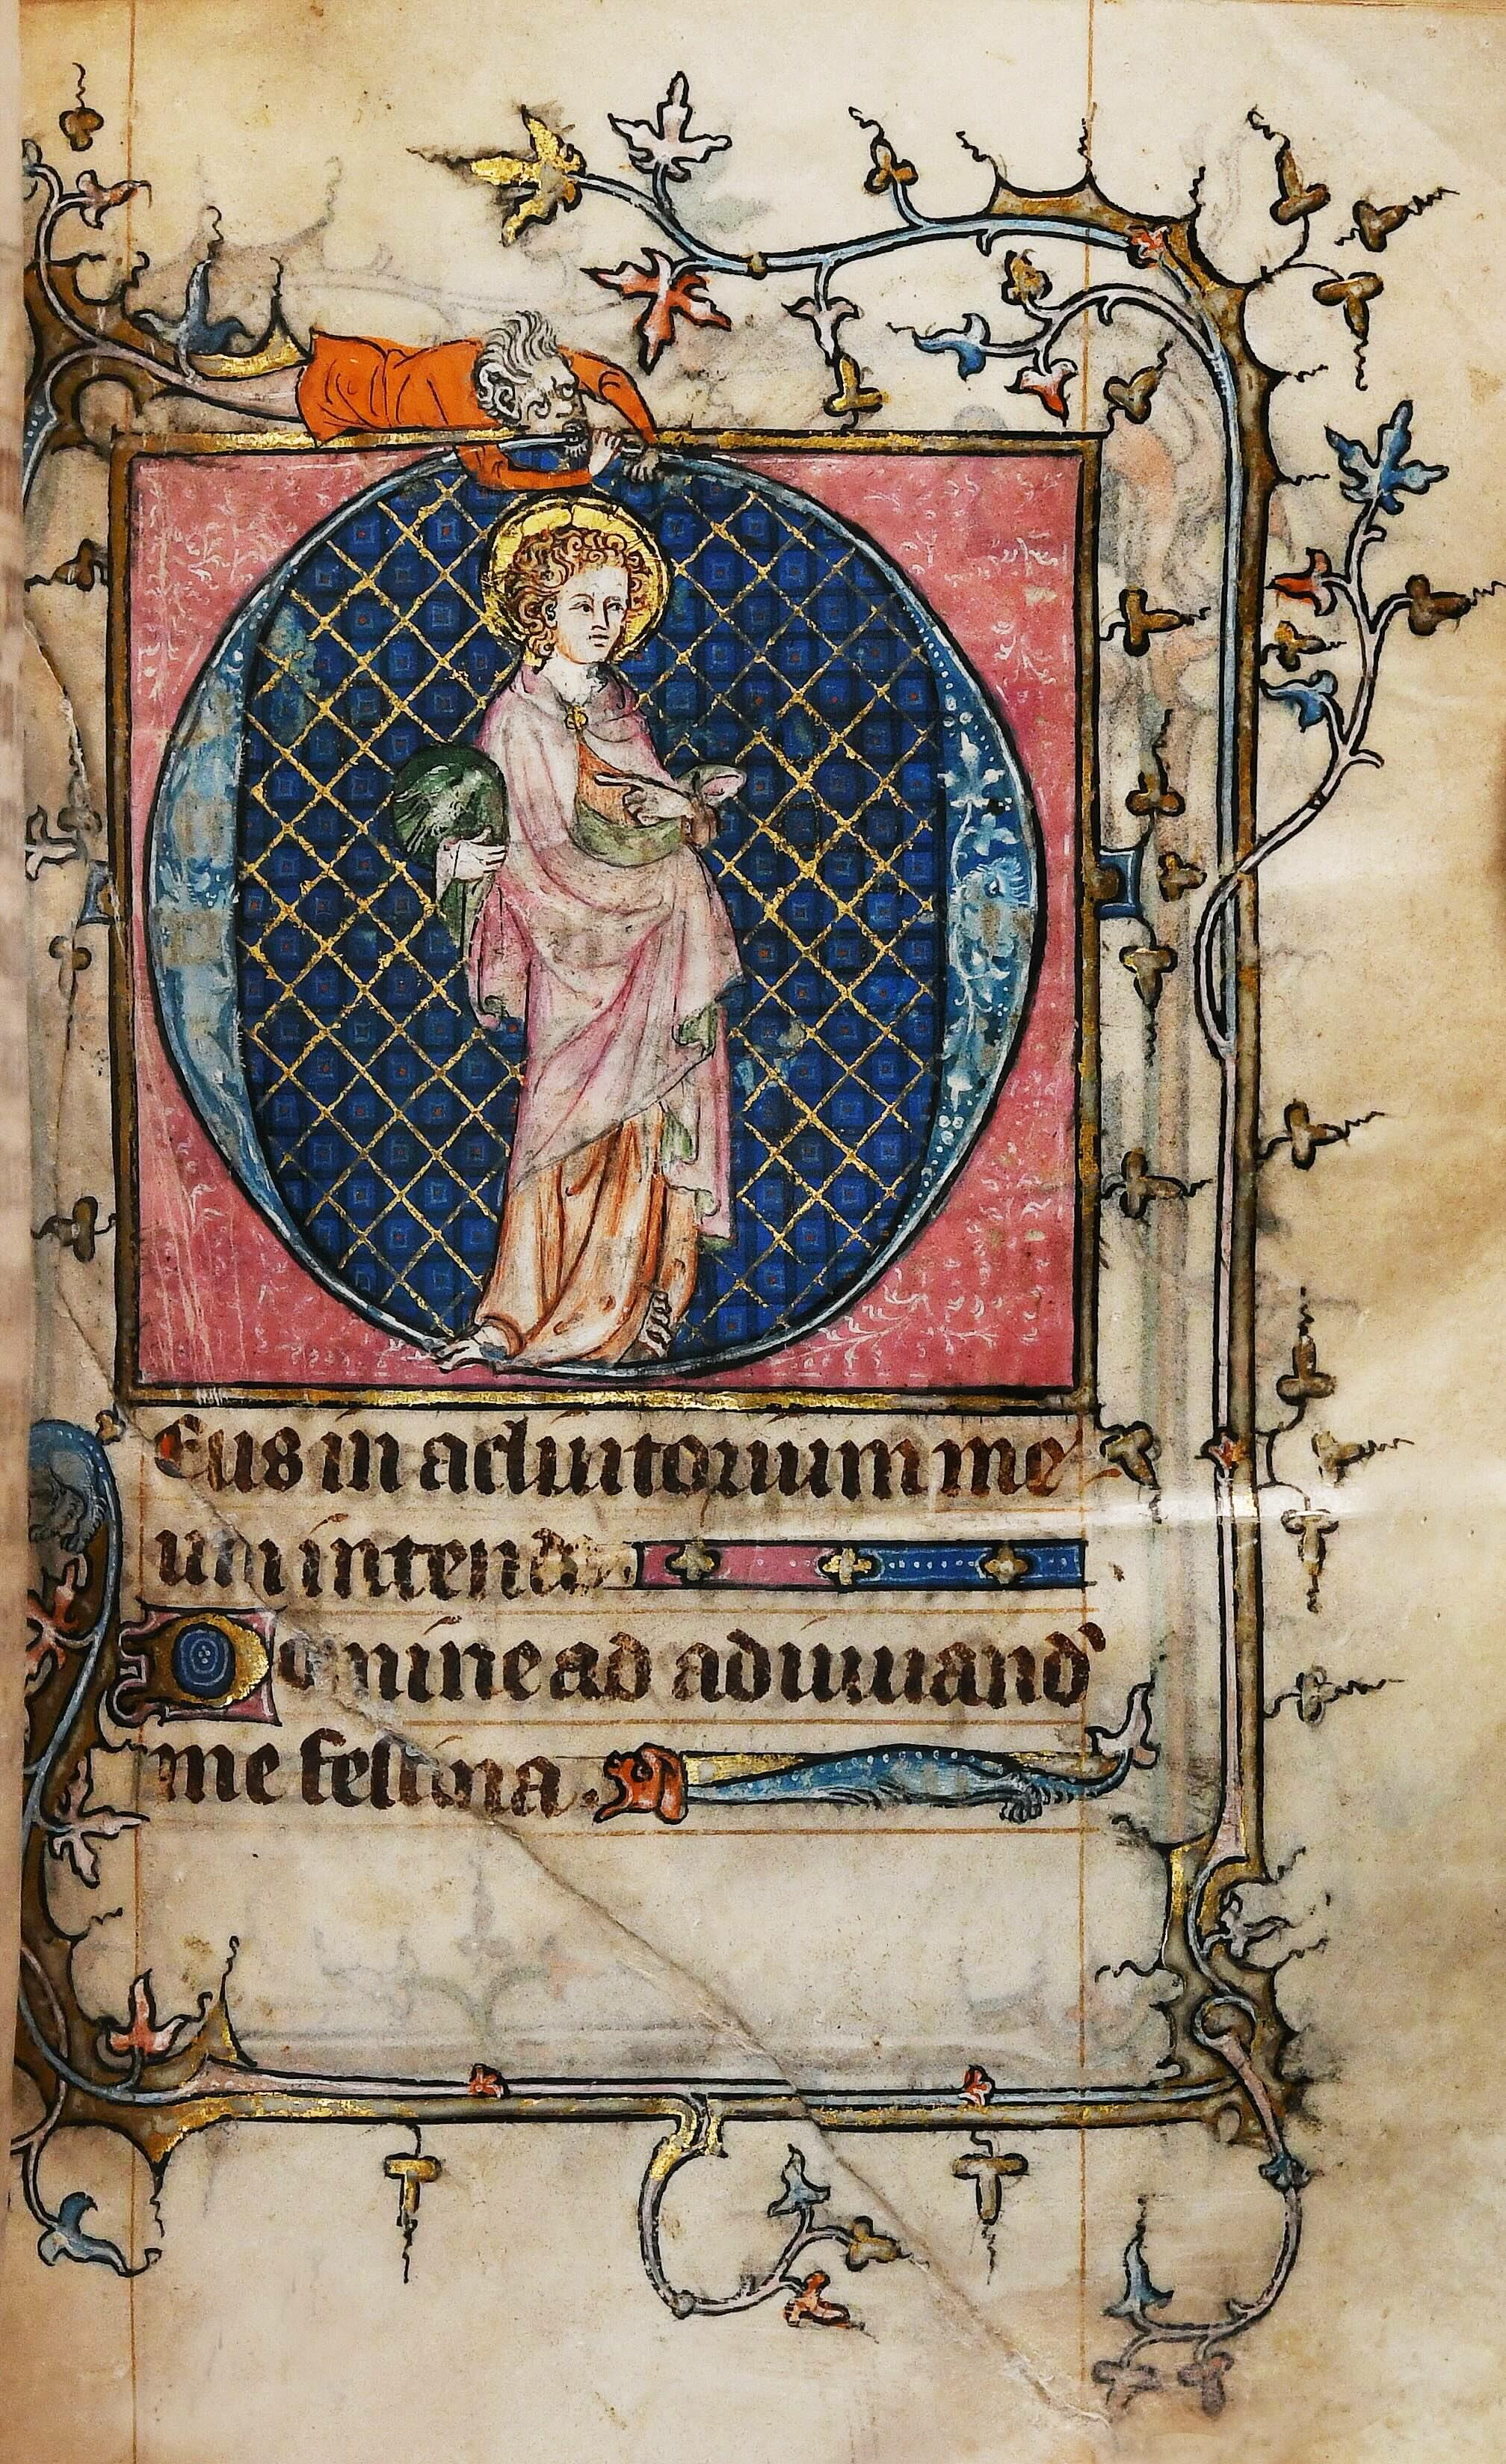 Deus in adiutorium me
um intende.
Domine ad adiuuand'
me festina.